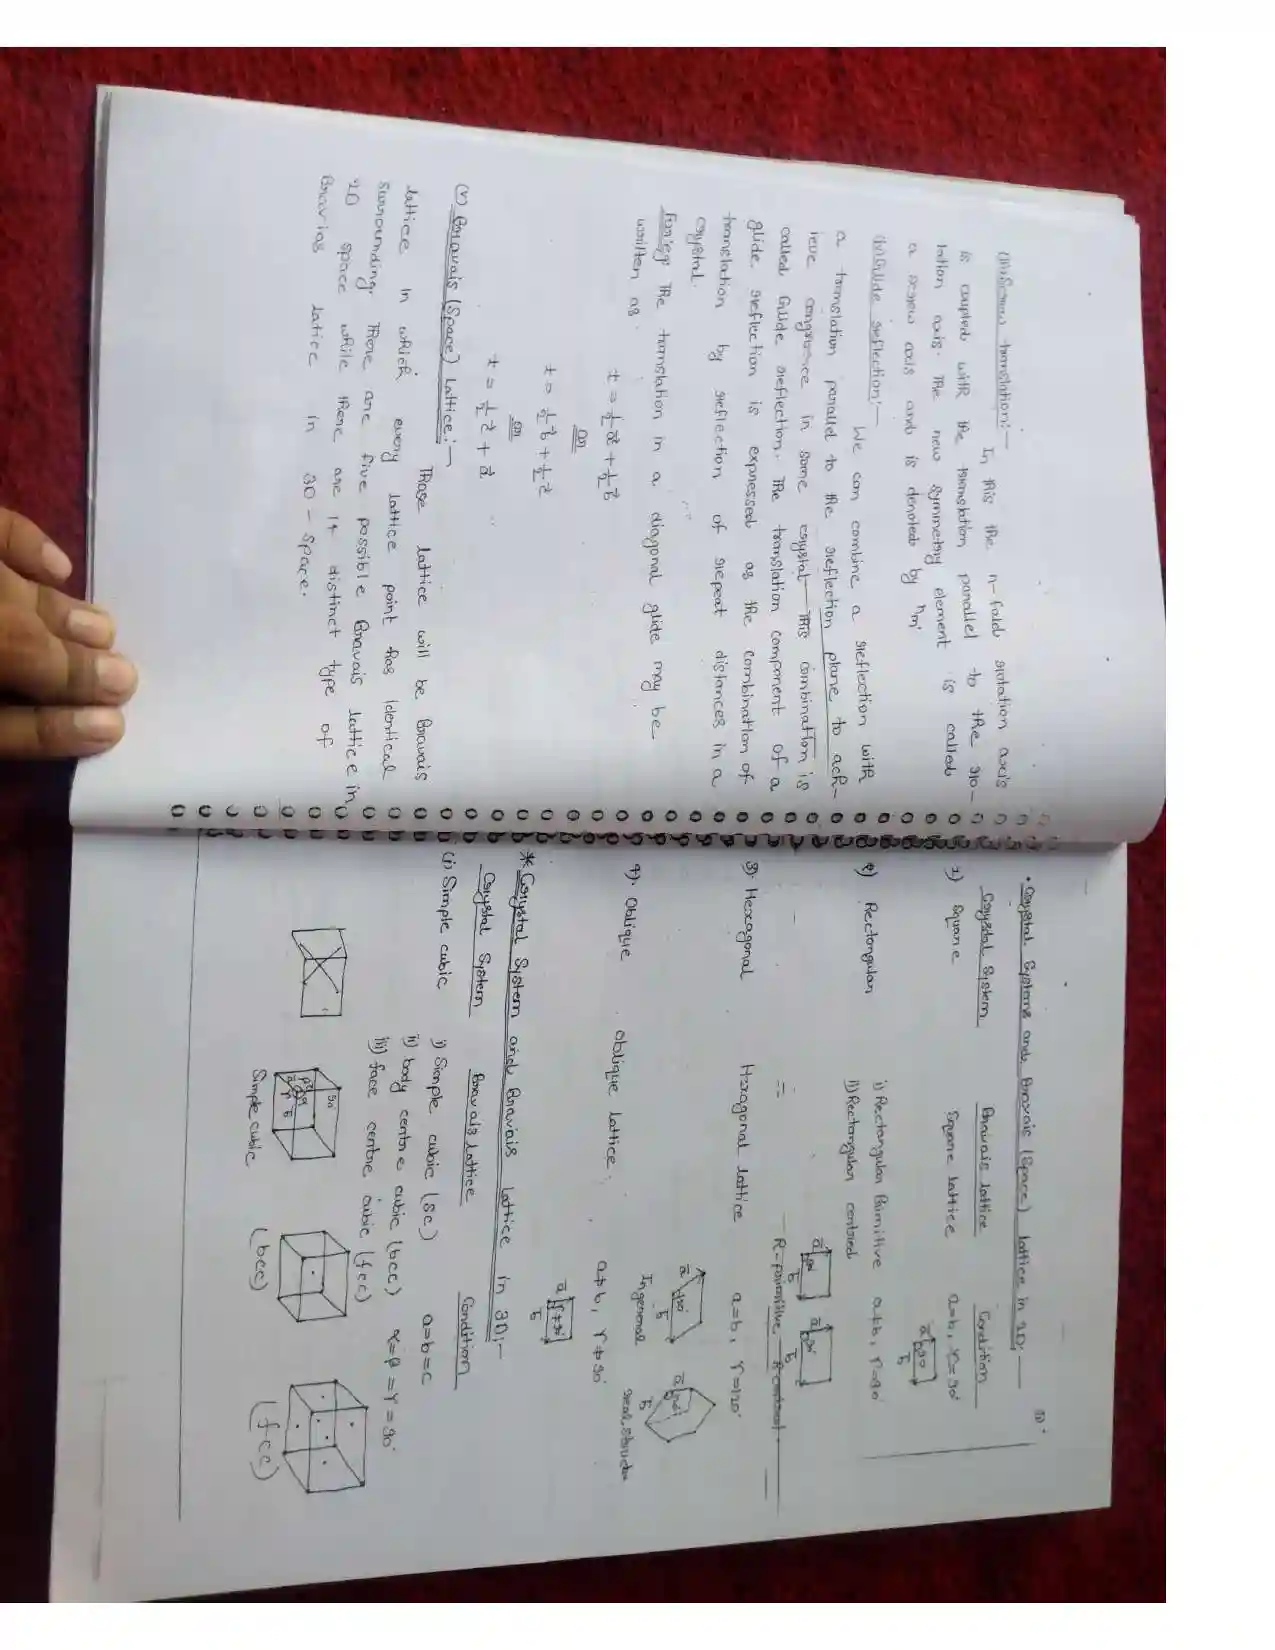 (iii) Screw translation:—
In this the n-fold rotation axis
is coupled with the translation parallel to the ro-
tation axis. The new symmetry element is called
a screw axis and is denoted by nm.
(iv) Glide reflection:—
We can combine a reflection with
a translation parallel to the reflection plane to ach-
ieve congruence in some crystal. This combination is
called Glide reflection. The translation component of a
glide reflection is expressed as the combination of
translation by reflection of repeat distances in a
crystal.
The translation in a diagonal glide may be
written as
t = 1/2 a + 1/2 b
or
t = 1/2 b + 1/2 c
or
t = 1/2 c + a
(v) Bravais (Space) lattice:—
Those lattice will be Bravais
lattice in which every lattice point has identical
surrounding. There are five possible Bravais lattice in
2D space while there are 14 distinct type of
Bravias latice in 3D-space.
• Crystal Systems and Bravais (Space) lattice in 2D:—
Crystal System Bravais lattice Condition
1) Square Square lattice a=b, r=90°
a 90 b
2) Rectangular i) Rectangular Primitive a≠b, r=90°
ii) Rectangular centred
a 90° b a 90° b
R-primitive R-centred
3). Hexagonal Hexagonal lattice a=b, r=120°
a 120° b a 120° b
In general real structu
4). Oblique oblique lattice. a≠b, r≠90°
a r≠90° b
* Crystal System and Bravais lattice in 3D:—
Crystal System Bravais lattice Condition
(i) Simple cubic i) Simple cubic (sc) a=b=c
ii) body centre cubic (bcc) α=β=r=90°
iii) face centre cubic (fcc)
Simple cubic (bcc) (fcc)